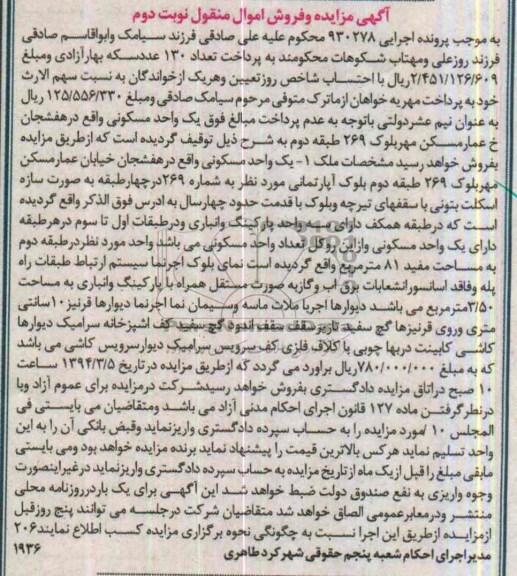 آگهی مزایده وفروش اموال منقول نوبت دوم
به موجب پرونده اجرایی ۹۳۰۲۷۸ محکوم علیه علی صادقی فرزند سیامک وابوالقاسم صادقی
فرزند روزعلی ومهتاب شکوهات محکومند به پرداخت تعداد ۱۳۰ عددسکه بهارآزادی ومبلغ
۲/۴۵۱/۱۲۶/۶۰۹ریال با احتساب شاخص روزتعیین وهریک ازخواندگان به نسبت سهم الارث
خود به پرداخت مهریه خواهان ازماترک متوفی مرحوم سیامک صادقی ومبلغ ۱۲۵/۵۵۶/۳۳۰ ریال
به عنوان نیم عشردولتی باتوجه به عدم پرداخت مبالغ فوق یک واحد مسکونی واقع درهفشجان
خ عمارمسکن مهربلوک ۲۶۹ طبقه دوم به شرح ذیل توقیف گردیده است که ازطریق مزایده
بفروش خواهد رسید مشخصات ملک ۱- یک واحد مسکونی واقع درهفشجان خیابان عمارمسکن
مهربلوک ۲۶۹ طبقه دوم بلوک آپارتمانی مورد نظر به شماره ۲۶۹درچهارطبقه به صورت سازه
اسکلت بتونی با سقفهای تیرچه وبلوک با قدمت حدود چهارسال به ادرس فوق الذکر واقع گردیده
است که درطبقه همکف دارای سه واحد پارکینگ وانباری ودرطبقات اول تا سوم درهرطبقه
دارای یک واحد مسکونی وازاین روکل تعداد واحد مسکونی می باشد واحد مورد نظردرطبقه دوم
به مساحت مفید ۸۱ مترمربع واقع گردیده است نمای بلوک اجرنما سیستم ارتباط طبقات راه
پله وفاقد اسانسورانشعابات برق اب وگازبه صورت مستقل همراه با پارکینگ وانباری به مساحت
۳/۵۰مترمربع می باشد دیوارها اجربا ملات ماسه وسیمان نما اجرنما دیوارها قرنیز۱۰سانتی
متری وروی قرنیزها گچ سفید تازیرسقف سقف اندود گچ سفید کف اشپزخانه سرامیک دیوارها
کاشی کابینت دربها چوبی با کلاف فلزی کف سرویس سرامیک دیوارسرویس کاشی می باشد
که به مبلغ ۷۸۰/۰۰۰/۰۰۰ریال براورد می گردد که ازطریق مزایده درتاریخ ۱۳۹۴/۳/۵ ساعت
۱۰ صبح دراتاق مزایده دادگستری بفروش خواهد رسیدشرکت درمزایده برای عموم آزاد وبا
درنظرگرفتن ماده ۱۲۷ قانون اجرای احکام مدنی آزاد می باشد ومتقاضیان می بایستی فی
المجلس ۱۰ /مورد مزایده را به حساب سپرده دادگستری واریزنماید وقبض بانکی آن را به این
واحد تسلیم نماید هرکس بالاترین قیمت را پیشنهاد نماید برنده مزایده خواهد بود ومی بایستی
مابقی مبلغ را قبل ازیک ماه ازتاریخ مزایده به حساب سپرده دادگستری واریزنماید درغیراینصورت
وجوه واریزی به نفع صندوق دولت ضبط خواهد شد این آگهی برای یک باردرروزنامه محلی
منتشر ودرمعابرعمومی الصاق خواهد شد متقاضیان شرکت درجلسه می توانند پنج روزقبل
ازمزایده ازطریق این اجرا نسبت به چگونگی نحوه برگزاری مزایده کسب اطلاع نمایند۲۰۶
مدیراجرای احکام شعبه پنجم حقوقی شهرکرد طاهری ۱۹۳۶